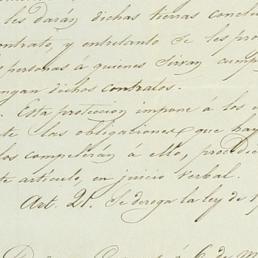 les daran dichas tierras conclu
ontrato, y entretanto se les pro
personas á quienes sirvan cump
ngan dichos contratos.
Esta proteccion impone á los
te las obligaciones que hay
los compelerán á ello, procedien
te artículo, en juicio verbal.
Art. 21. Se deroga la ley de 1